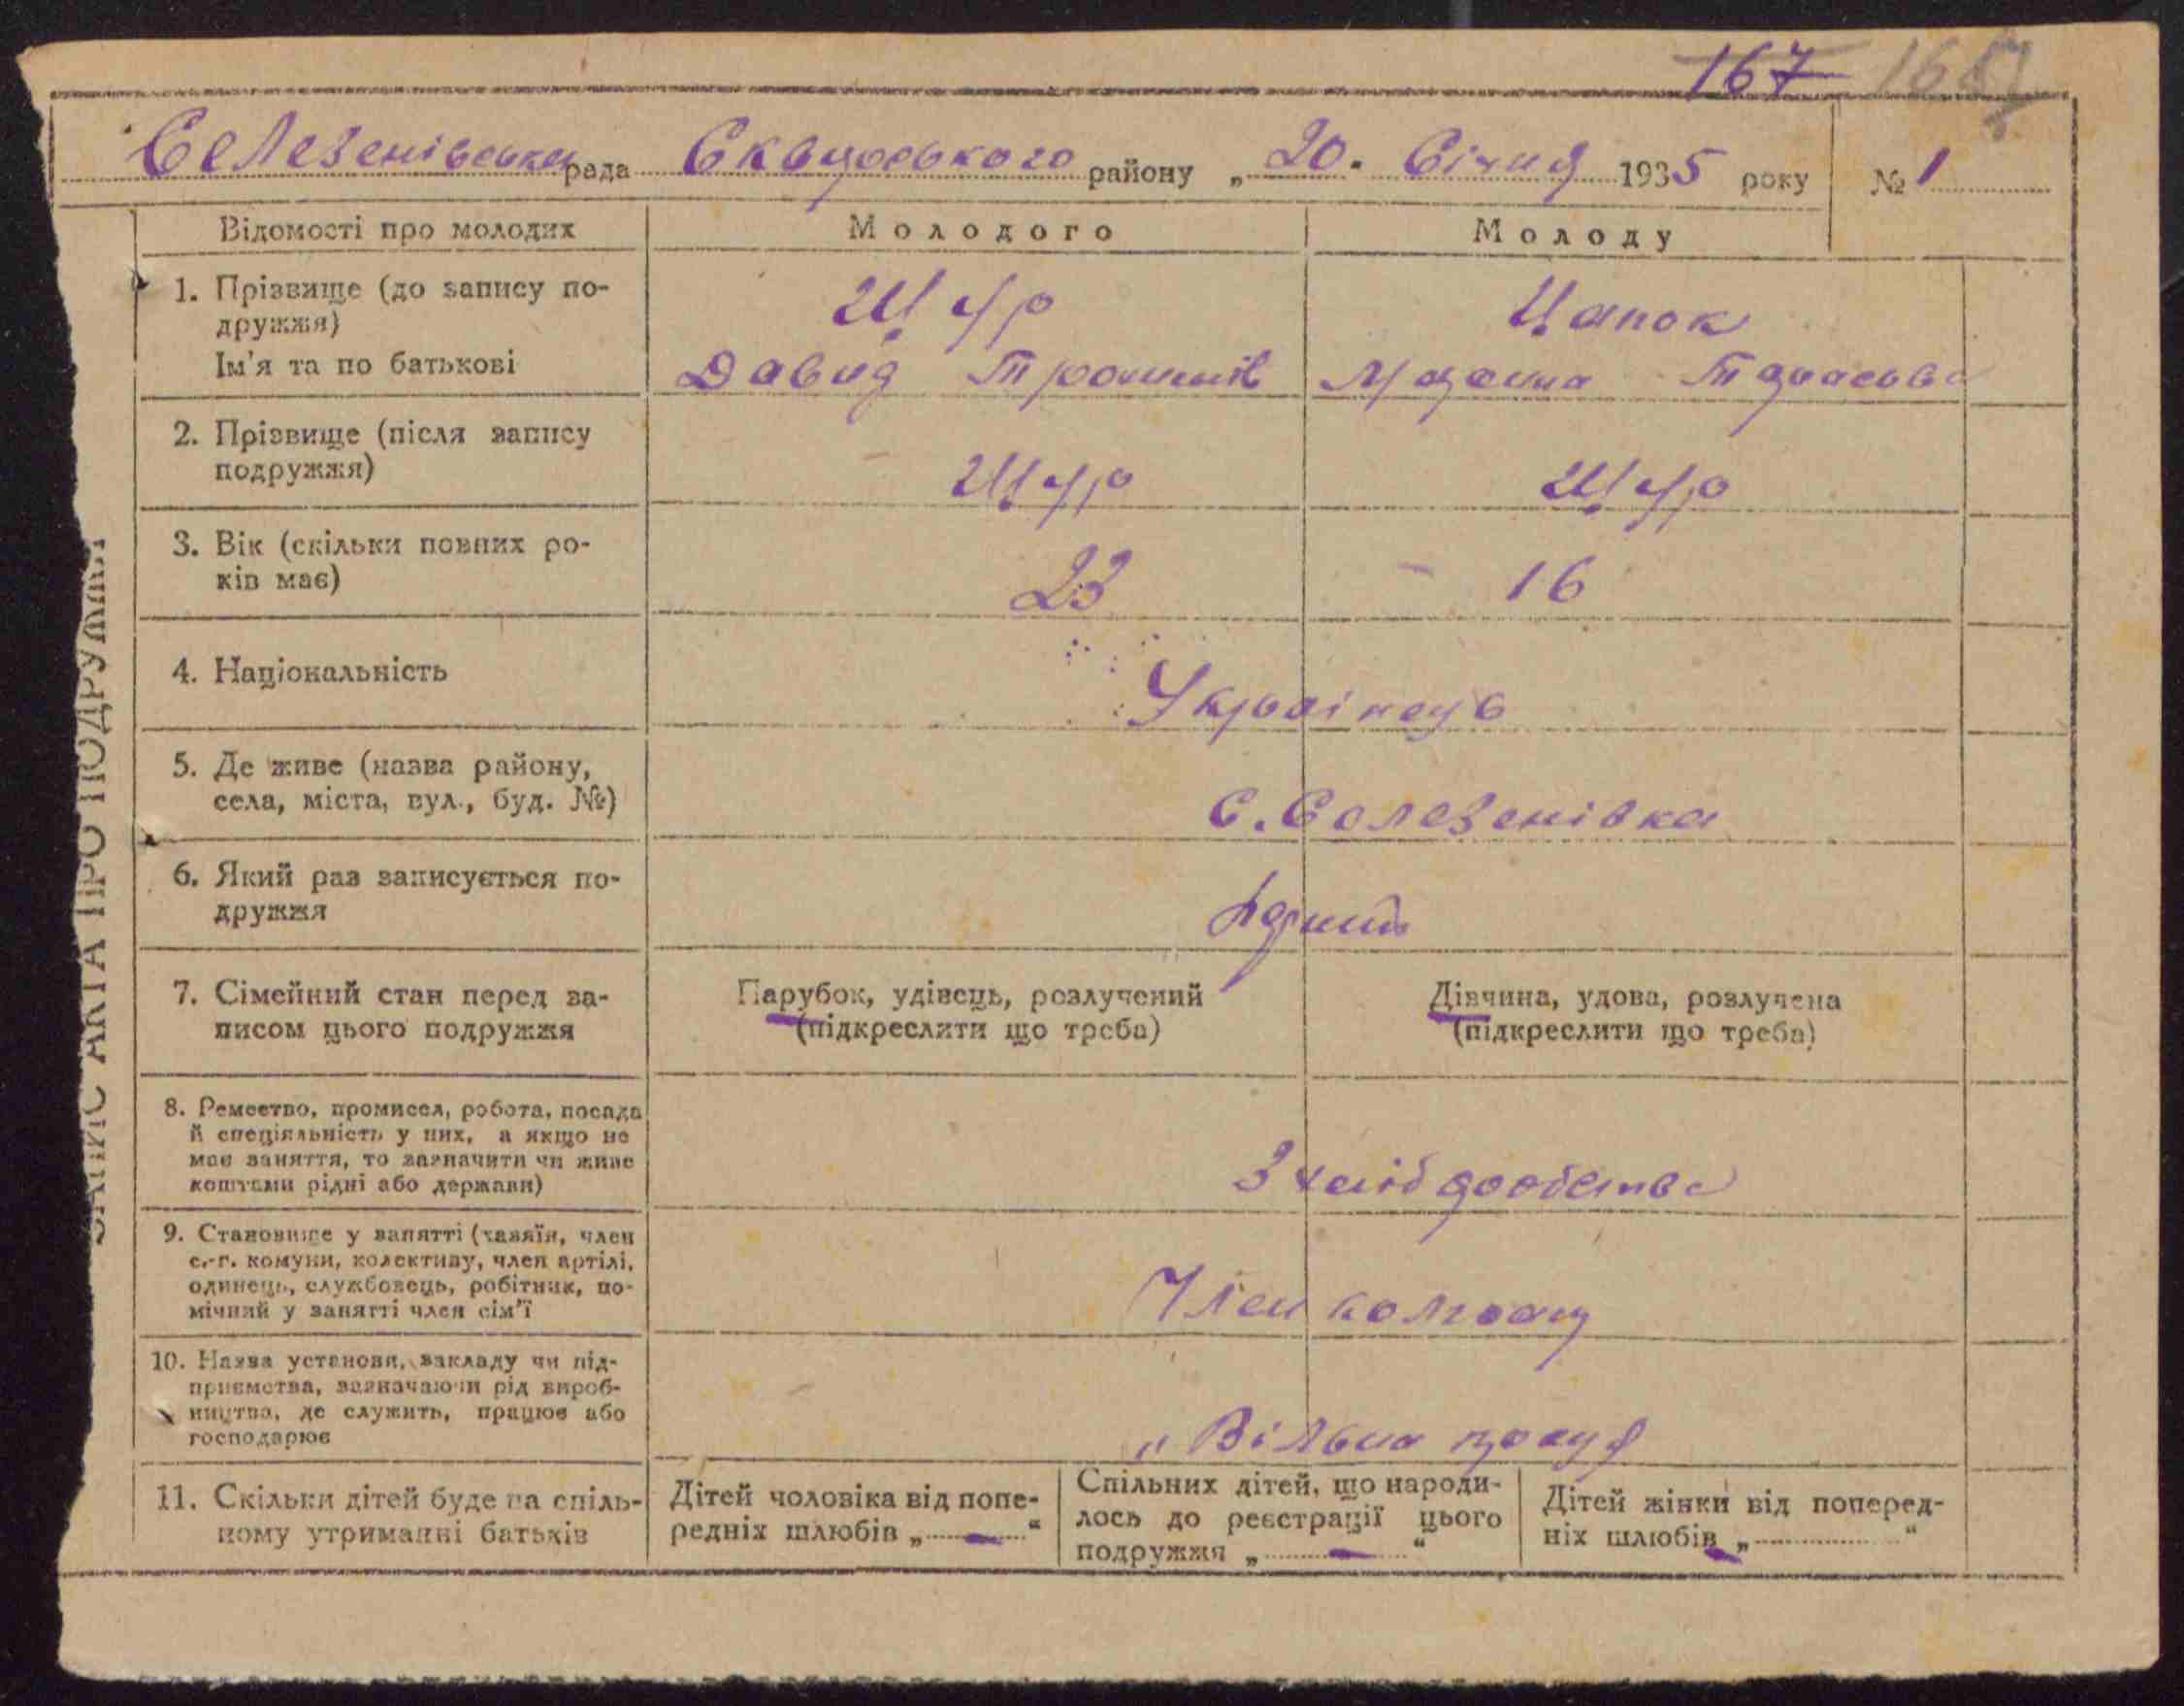 167
Селезенівська рада Сквирського району „ 20. Січня 1935 року № 1
Відомості про молодих
Молодого
Молоду
1. Прізвище (до запису по-
дружжя)
Ім'я та по батькові
Щур
Давид Трохимів
Цапок
Тарасова
2. Прізвище (після запису
подружжя)
Щур
Щур
3. Вік (скільки повних ро-
ків має)
23
16
4. Національність
Українець
5. Де живе (назва району,
села, міста, вул., буд. №)
С. Селезенівка
6. Який раз записується по-
дружжя
7. Сімейний стан перед за-
писом цього подружжя
Парубок, удівець, розлучений
(підкреслити що треба)
Дівчина, удова, розлучена
(підкреслити що треба)
8. Ремество, промисел, робота, посада
й спеціяльність у них, а якщо не
має заняття, то зазначити чи живе
коштами рідні або держави)
З хліборобства
9. Становище у занятті (хазяїн, член
с.-г. комуни, колективу, член артілі,
одинець, службовець, робітник, по-
мічний у занятті член сім'ї
Член колгоспу
10. Назва установи, закладу чи під-
приємства, зазначаючи рід вироб-
ництва, де служить, працює або
господарює
„ Вільна праця
11. Скільки дітей буде на спіль-
ному утриманні батьків
Дітей чоловіка від попе-
редніх шлюбів „ — “
Спільних дітей, що народи-
лось до реєстрації цього
подружжя „ — “
Дітей жінки від поперед-
ніх шлюбів „ — “
ЗАПИС АКТА ПРО ПОДРУЖЖЯ